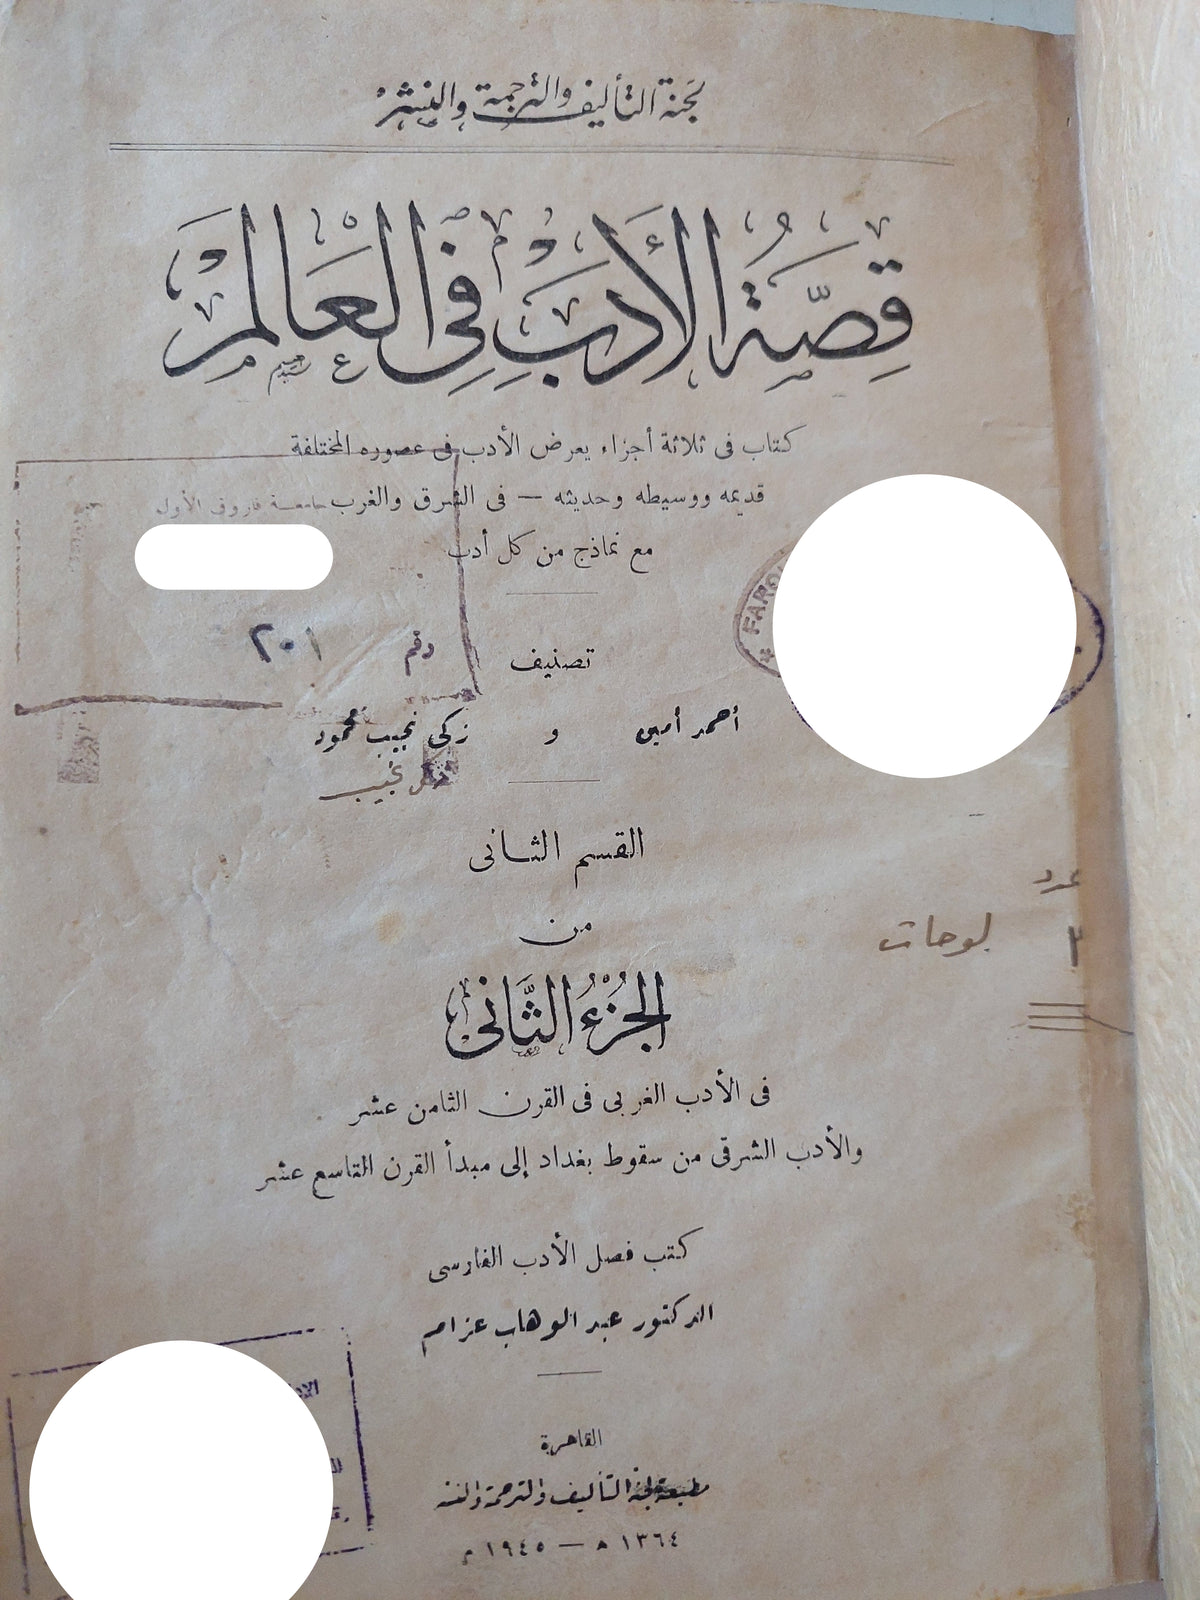 لجنة التأليف والترجمة والنشر
قِصَّةُ الأَدَبِ فِي العَالَمِ
كتاب فى ثلاثة أجزاء يعرض الأدب فى عصوره المختلفة
قديمه ووسيطه وحديثه — فى الشرق والغرب
جامعة فاروق الأول
مع نماذج من كل أدب
FARO
رقم ٢٠١
تصنيف
أحمد أمين و زكى نجيب محمود
نجيب
القسم الثانى
من
عدد
٣ لوحات
الجُزْءُ الثَّانى
فى الأدب الغربى فى القرن الثامن عشر
والأدب الشرقى من سقوط بغداد إلى مبدأ القرن التاسع عشر
كتب فصل الأدب الفارسى
الدكتور عبد الوهاب عزام
القاهرة
مطبعة لجنة التأليف والترجمة والنشر
١٣٦٤ ه — ١٩٤٥ م